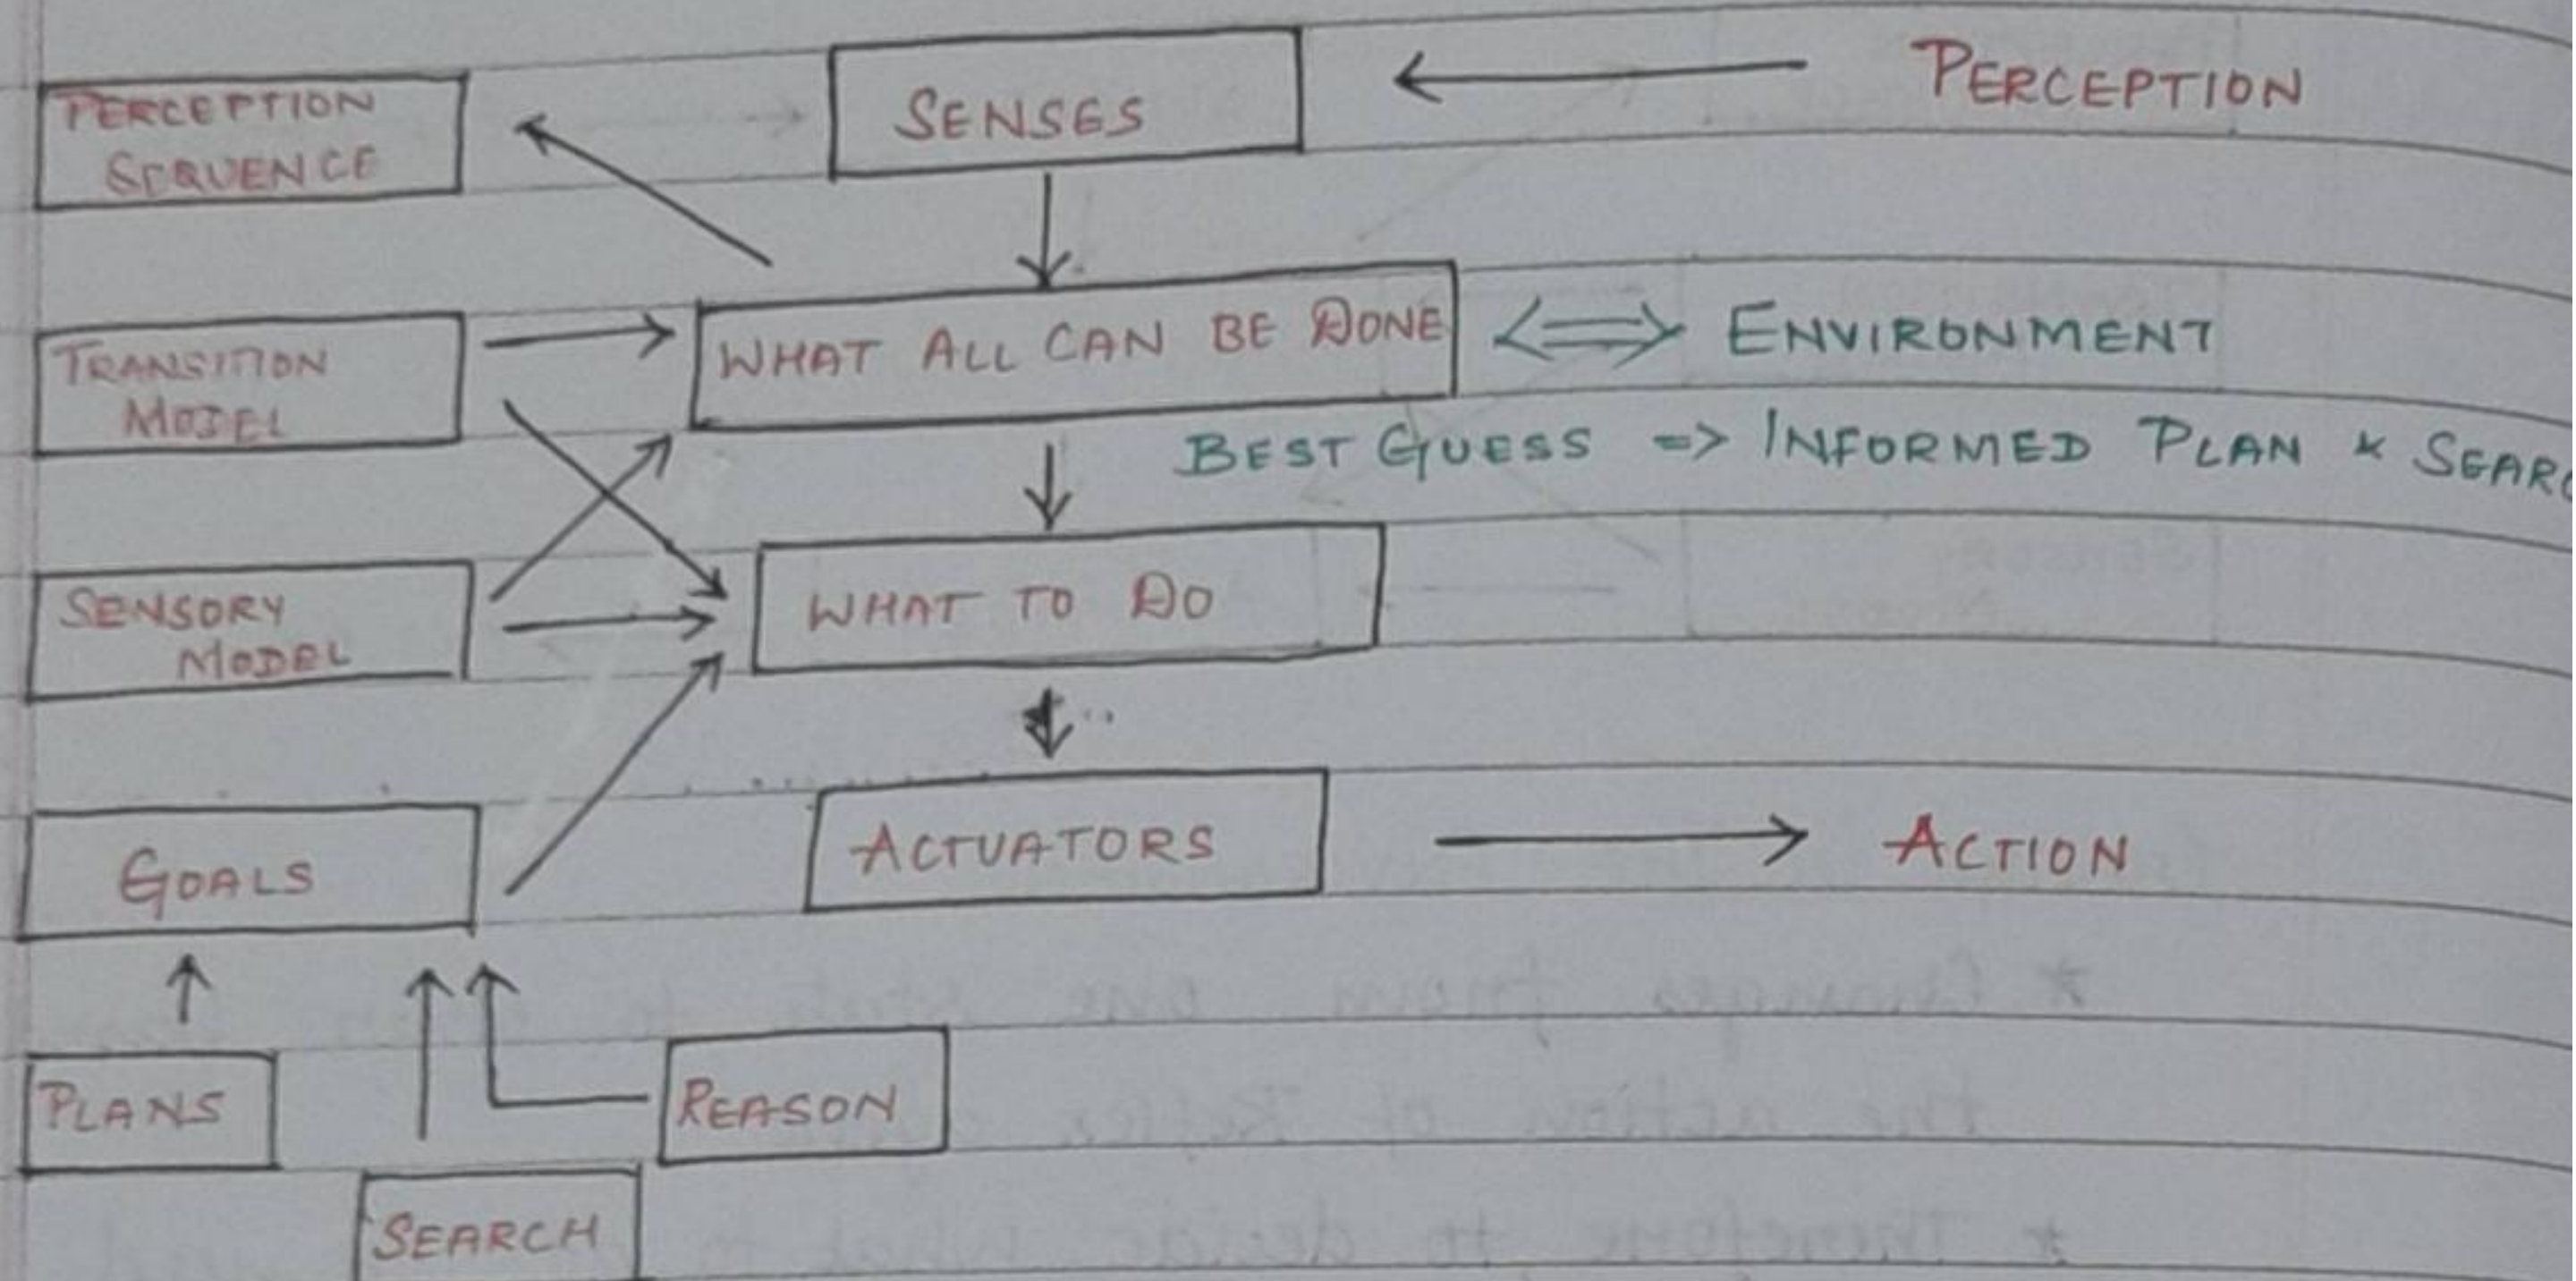 PERCEPTION
SEQUENCE
SENSES
PERCEPTION
TRANSITION
MODEL
WHAT ALL CAN BE DONE
ENVIRONMENT
BEST GUESS => INFORMED PLAN * SEARC
SENSORY
MODEL
WHAT TO DO
GOALS
ACTUATORS
ACTION
PLANS
REASON
SEARCH